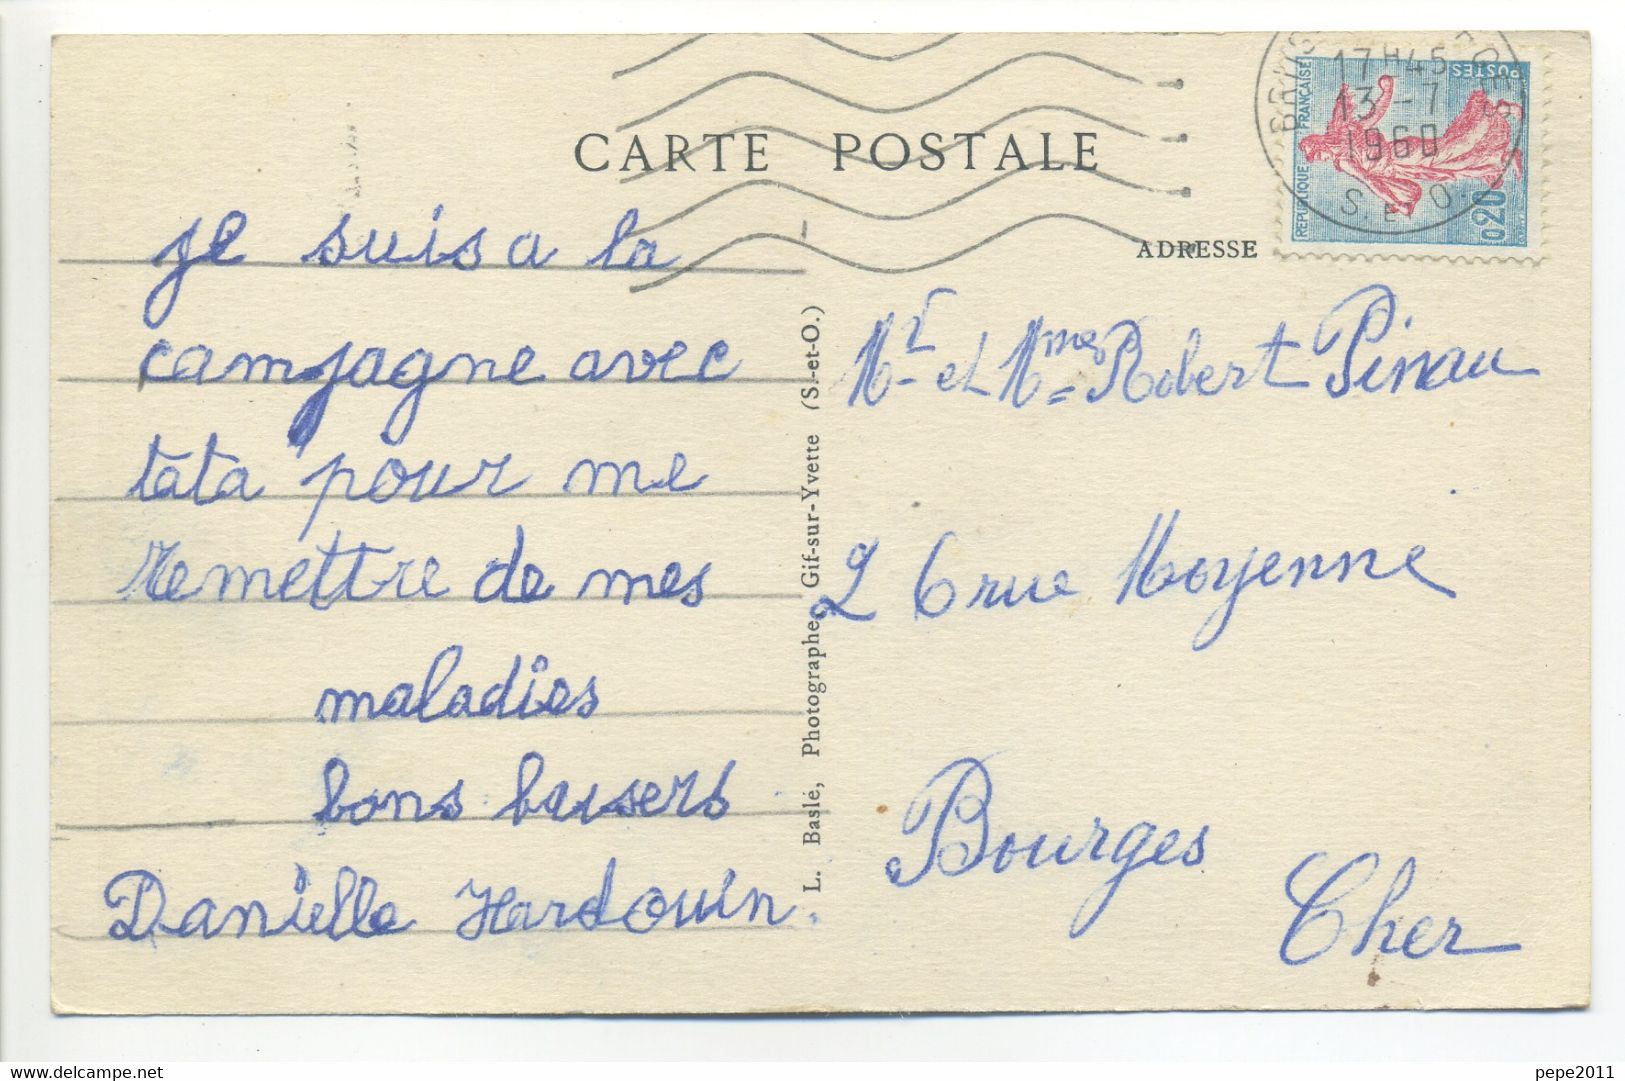 CARTE POSTALE
ADRESSE
17H45
13-7
1960
S. ET O.
POSTES
REPUBLIQUE FRANÇAISE
0,20
je suis a la
campagne avec
tata pour me
remettre de mes
maladies
bons baisers
Danielle Hardouin.
L. Baslé, Photographe, Gif-sur-Yvette (S.-et-O.)
Mr et Mme Robert Pinau
26 rue Moyenne
Bourges
Cher
delcampe.net
pepe2011